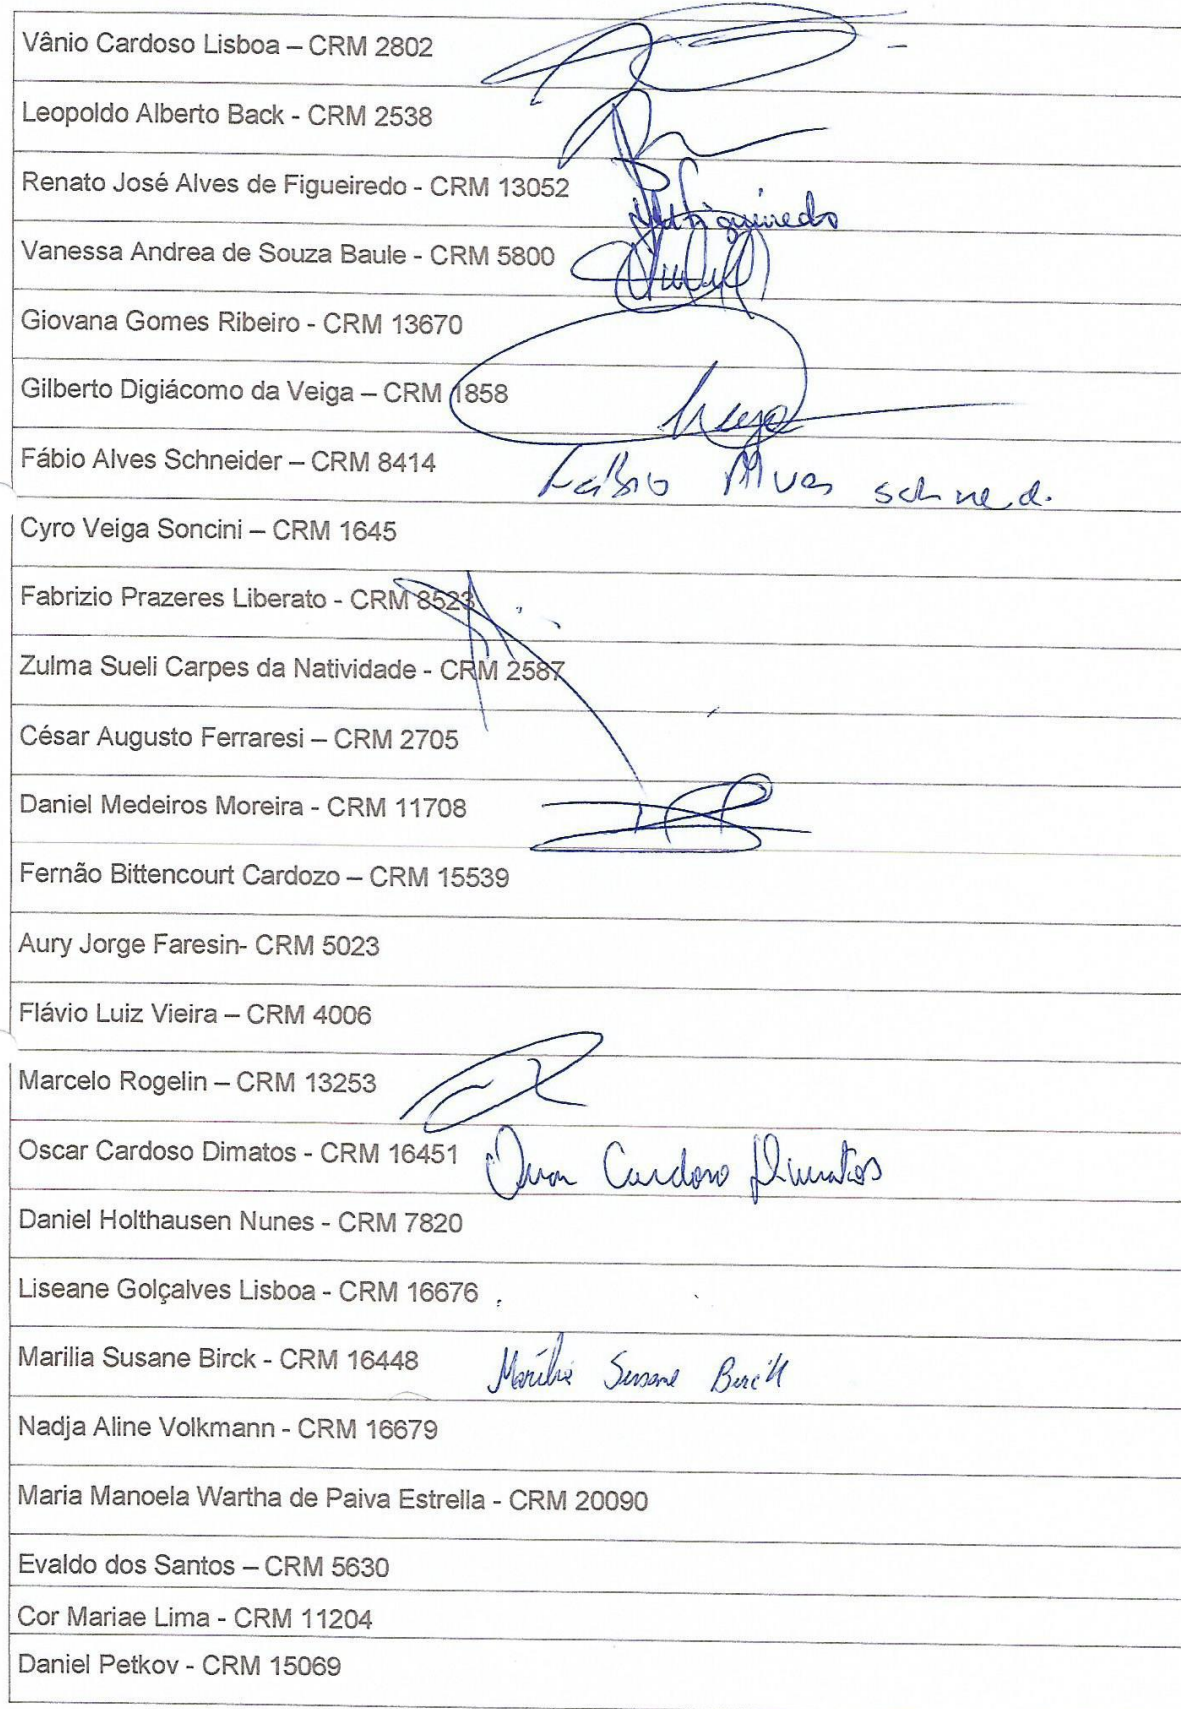 Vânio Cardoso Lisboa – CRM 2802
Leopoldo Alberto Back - CRM 2538
Renato José Alves de Figueiredo - CRM 13052
Figueiredo
Vanessa Andrea de Souza Baule - CRM 5800
Giovana Gomes Ribeiro - CRM 13670
Gilberto Digiácomo da Veiga – CRM 1858
Fábio Alves Schneider – CRM 8414 Fábio Alves
Cyro Veiga Soncini – CRM 1645
Fabrizio Prazeres Liberato - CRM 8523
Zulma Sueli Carpes da Natividade - CRM 2587
César Augusto Ferraresi – CRM 2705
Daniel Medeiros Moreira - CRM 11708
Fernão Bittencourt Cardozo – CRM 15539
Aury Jorge Faresin- CRM 5023
Flávio Luiz Vieira – CRM 4006
Marcelo Rogelin – CRM 13253
Oscar Cardoso Dimatos - CRM 16451 Oscar Cardoso Dimatos
Daniel Holthausen Nunes - CRM 7820
Liseane Golçalves Lisboa - CRM 16676
Marilia Susane Birck - CRM 16448 Marilia Susane Birck
Nadja Aline Volkmann - CRM 16679
Maria Manoela Wartha de Paiva Estrella - CRM 20090
Evaldo dos Santos – CRM 5630
Cor Mariae Lima - CRM 11204
Daniel Petkov - CRM 15069